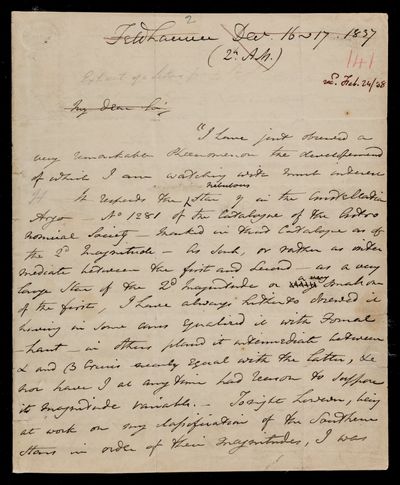 2
Feldhausen Dec. 16 & 17. 1837
(2h. A.M.)
141
recd. Feb. 24/38
Extract of a letter
My dear Sir,
"I have just observed a
very remarkable Phenomenon the developement
of which I am watching with much interest
nebulous
It respects the Star η in the Constellation
Argo No 1281 of the Catalogue of the Astro
nomical Society – marked in that Catalogue as of
the 2d Magnitude – As such, or rather as inter
mediate between the first and second – as a very
large Star of the 2d magnitude or a very small one
of the first, I have always hitherto observed it
having in some cases equalized it with Fomal
-haut – in others placed it intermediate between
α and β Crucis nearly equal with the latter, &c
nor have I at any time had reason to suppose
its magnitude variable. – Tonight however, being
at work on my classification of the Southern
stars in order of their magnitudes, I was